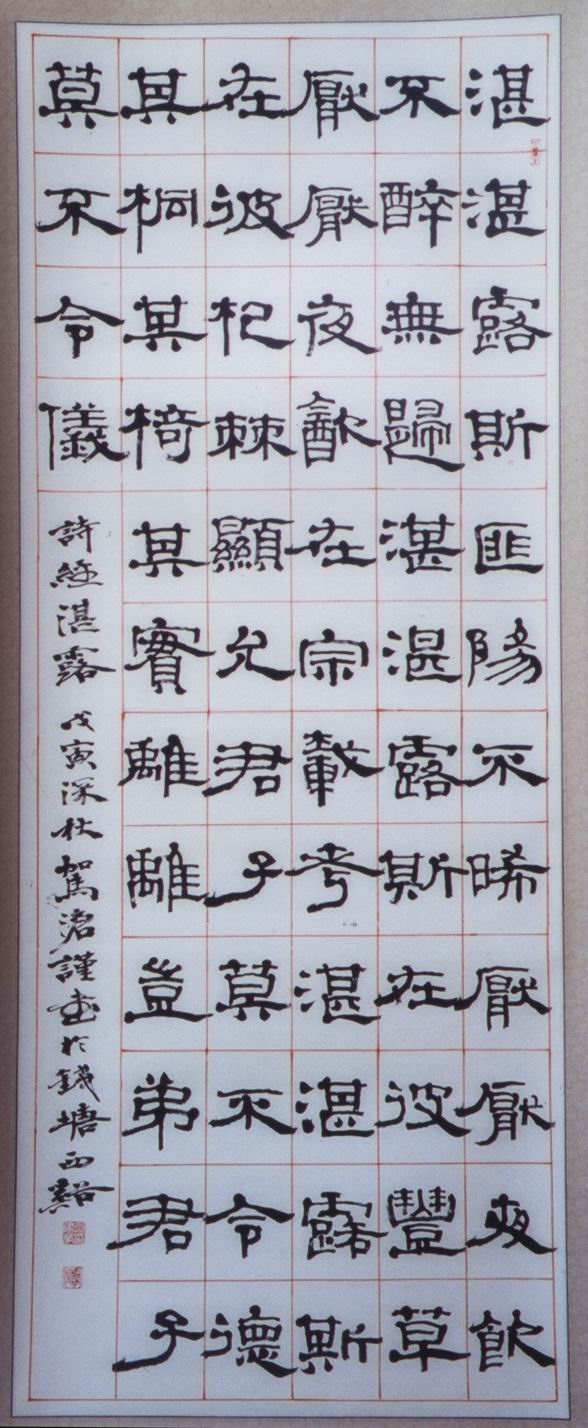 湛湛露斯匪陽不晞厭厭夜飲
不醉無歸湛湛露斯在彼豐草
厭厭夜飲在宗載考湛湛露斯
在彼杞棘顯允君子莫不令德
其桐其椅其實離離豈弟君子
莫不令儀
詩經湛露 戊寅深秋 駕滄謹書於錢塘西谿